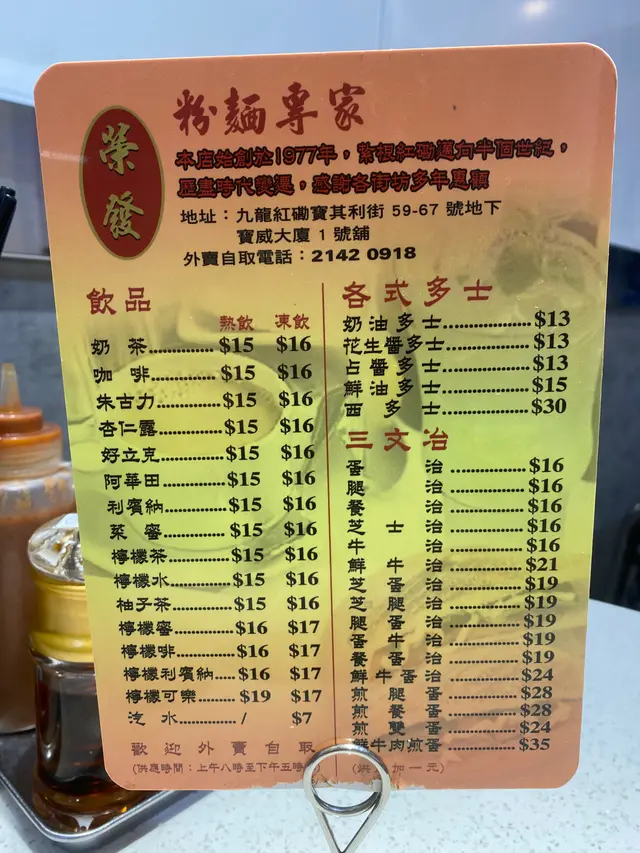 榮發
粉麵專家
本店始創於1977年，紮根紅磡邁向半個世紀，
歷盡時代變遷，感謝各街坊多年惠顧
地址：九龍紅磡寶其利街 59-67 號地下
寶威大廈 1 號舖
外賣自取電話：2142 0918
飲品
熱飲 凍飲
奶茶.............. $15 $16
咖啡.............. $15 $16
朱古力............ $15 $16
杏仁露............ $15 $16
好立克............ $15 $16
阿華田............ $15 $16
利賓納............ $15 $16
菜蜜.............. $15 $16
檸檬茶............ $15 $16
檸檬水............ $15 $16
柚子茶............ $15 $16
檸檬蜜............ $16 $17
檸檬啡............ $16 $17
檸檬利賓納..... $16 $17
檸檬可樂......... $19 $17
汽水.............. / $7
歡迎外賣自取
(供應時間：上午八時至下午五時
各式多士
奶油多士..................... $13
花生醬多士.................. $13
占醬多士..................... $13
鮮油多士..................... $15
西多士........................ $30
三文冶
蛋治.................. $16
腿治.................. $16
餐治.................. $16
芝士治............... $16
牛治.................. $16
鮮牛治............... $21
芝蛋治............... $19
芝腿治............... $19
腿蛋治............... $19
蛋牛治............... $19
餐蛋治............... $19
鮮牛蛋治............ $24
煎腿蛋............... $28
煎餐蛋............... $28
煎雙蛋............... $24
鮮牛肉煎蛋......... $35
(烘 加一元)